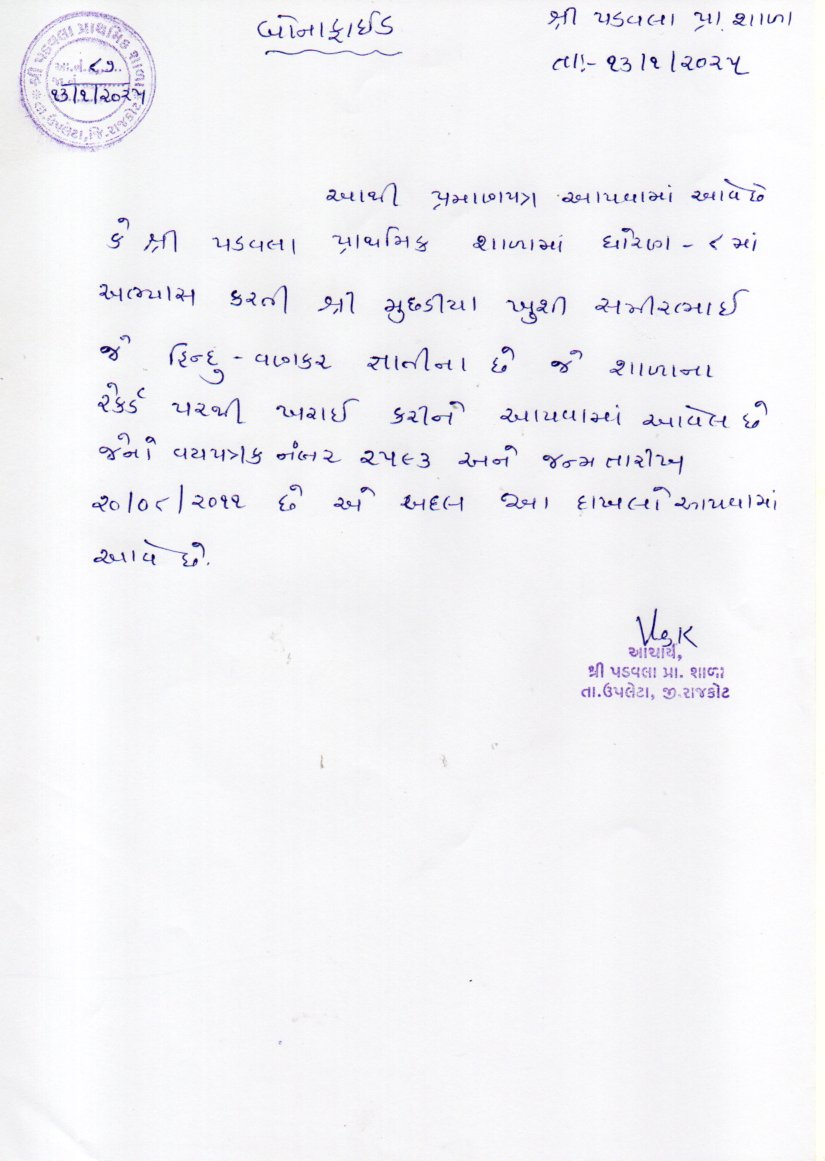 બોનાફાઈડ
શ્રી પડવલા પ્રા. શાળા
તા:- ૧૩/૧/૨૦૨૫
શ્રી પડવલા પ્રાથમિક શાળા
આ.નં. ૮૭
૧૩/૧/૨૦૨૫
આથી પ્રમાણપત્ર આપવામાં આવેછે
કે શ્રી પડવલા પ્રાથમિક શાળામાં ધોરણ - ૮ માં
અભ્યાસ કરતી શ્રી મુછડીયા ખુશી સમીરભાઈ
જે હિન્દુ - વણકર જ્ઞાતીના છે જે શાળાના
રેકર્ડ પરથી ખરાઈ કરીને આપવામાં આવેલ છે
જેનો વયપત્રક નંબર ૨૫૯૩ અને જન્મ તારીખ
૨૦/૦૮/૨૦૧૧ છે એ બદલ આ દાખલો આપવામાં
આવે છે.
આચાર્ય,
શ્રી પડવલા પ્રા. શાળા
તા.ઉપલેટા, જી.રાજકોટ